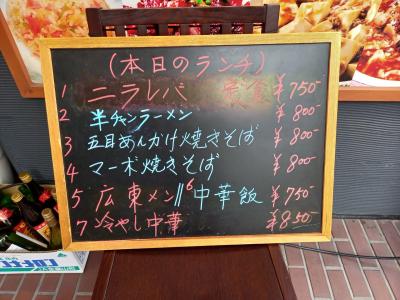 (本日のランチ)
1 ニラレバ 定食 ¥750-
2 半チャンラーメン ¥800-
3 五目あんかけ焼きそば ¥800-
4 マーボ焼きそば ¥800-
5 広東メン // 6 中華飯 ¥750-
7 冷やし中華 ¥850-